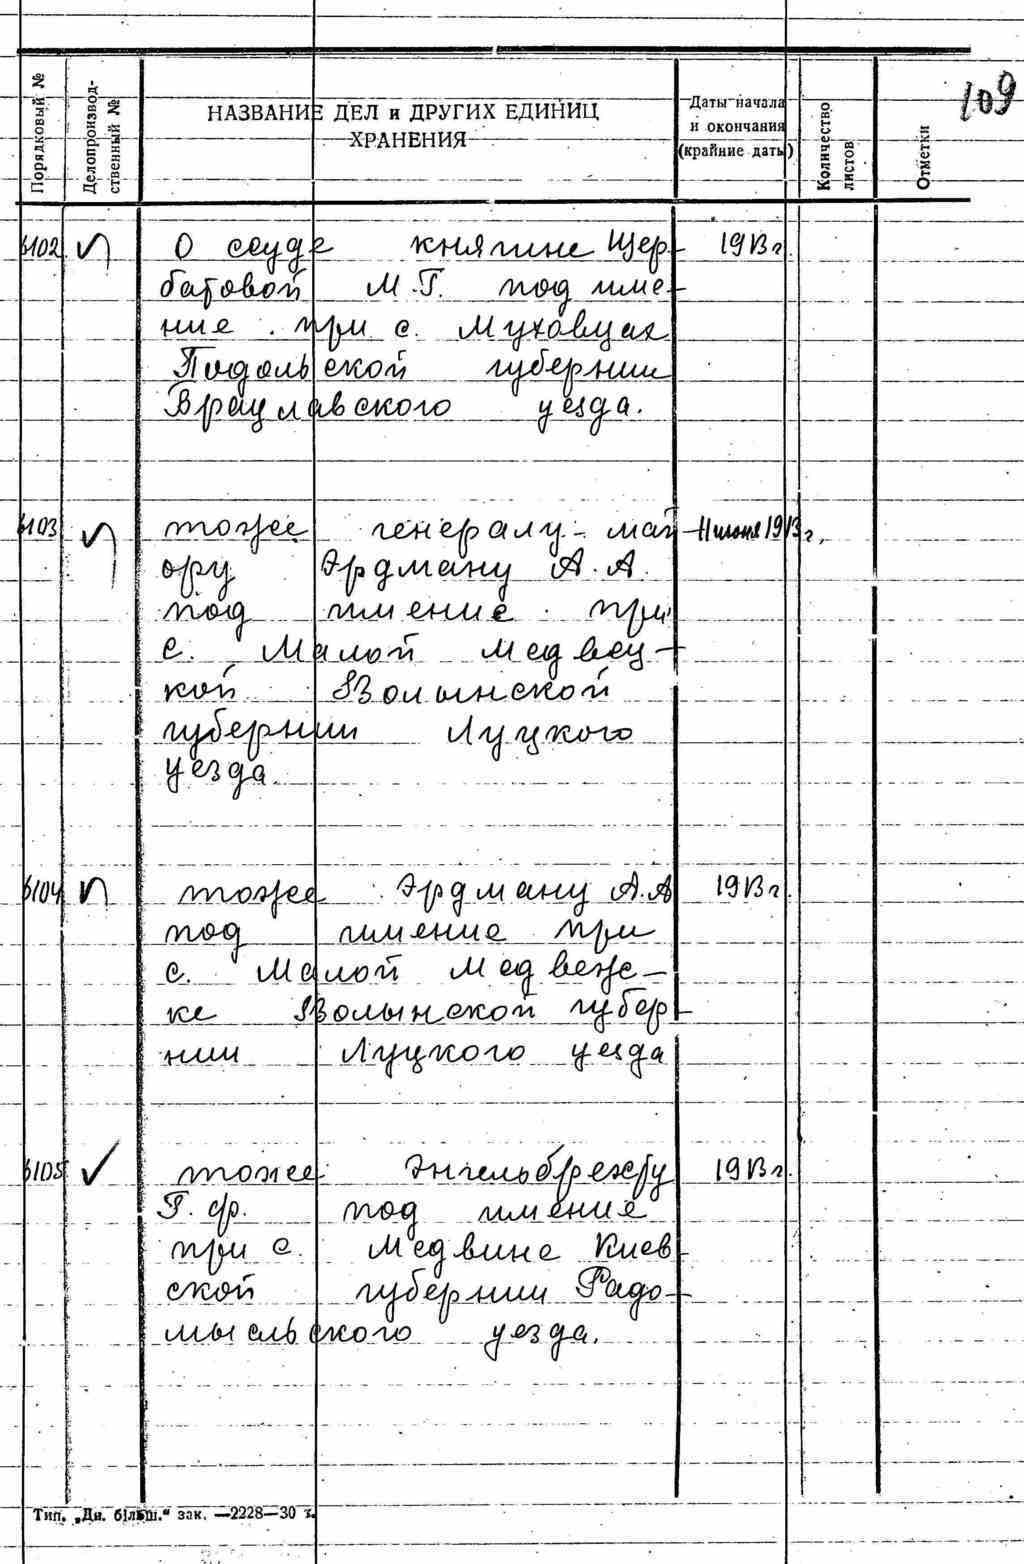 109
Порядковый №
Делопроизвод-
ственный №
НАЗВАНИЕ ДЕЛ и ДРУГИХ ЕДИНИЦ
ХРАНЕНИЯ
Даты начала
и окончания
(крайние даты)
Количество
листов
Отметки
6102 О ссуде княгине Щер- 1913 г
батовой М.Г. под име-
ние при с. Муховцах
Подольской губернии
Брацлавского уезда.
6103 тоже генералу-май- 11 июня 1913 г.
ору Эрдману А.А.
под имение при
с. Малой Медвец-
кой Волынской
губернии Луцкого
уезда
6104 тоже Эрдману А.А 1913 г.
под имение при
с. Малой Медвеж-
ке Волынской губер-
нии Луцкого уезда
6105 тоже Энгельбрехту 1913 г.
Г. Ф. под имение
при с. Медвине Киев-
ской губернии Радо-
мысльского уезда.
Тип. „Дн. більш.“ зак. —2228—30 т.